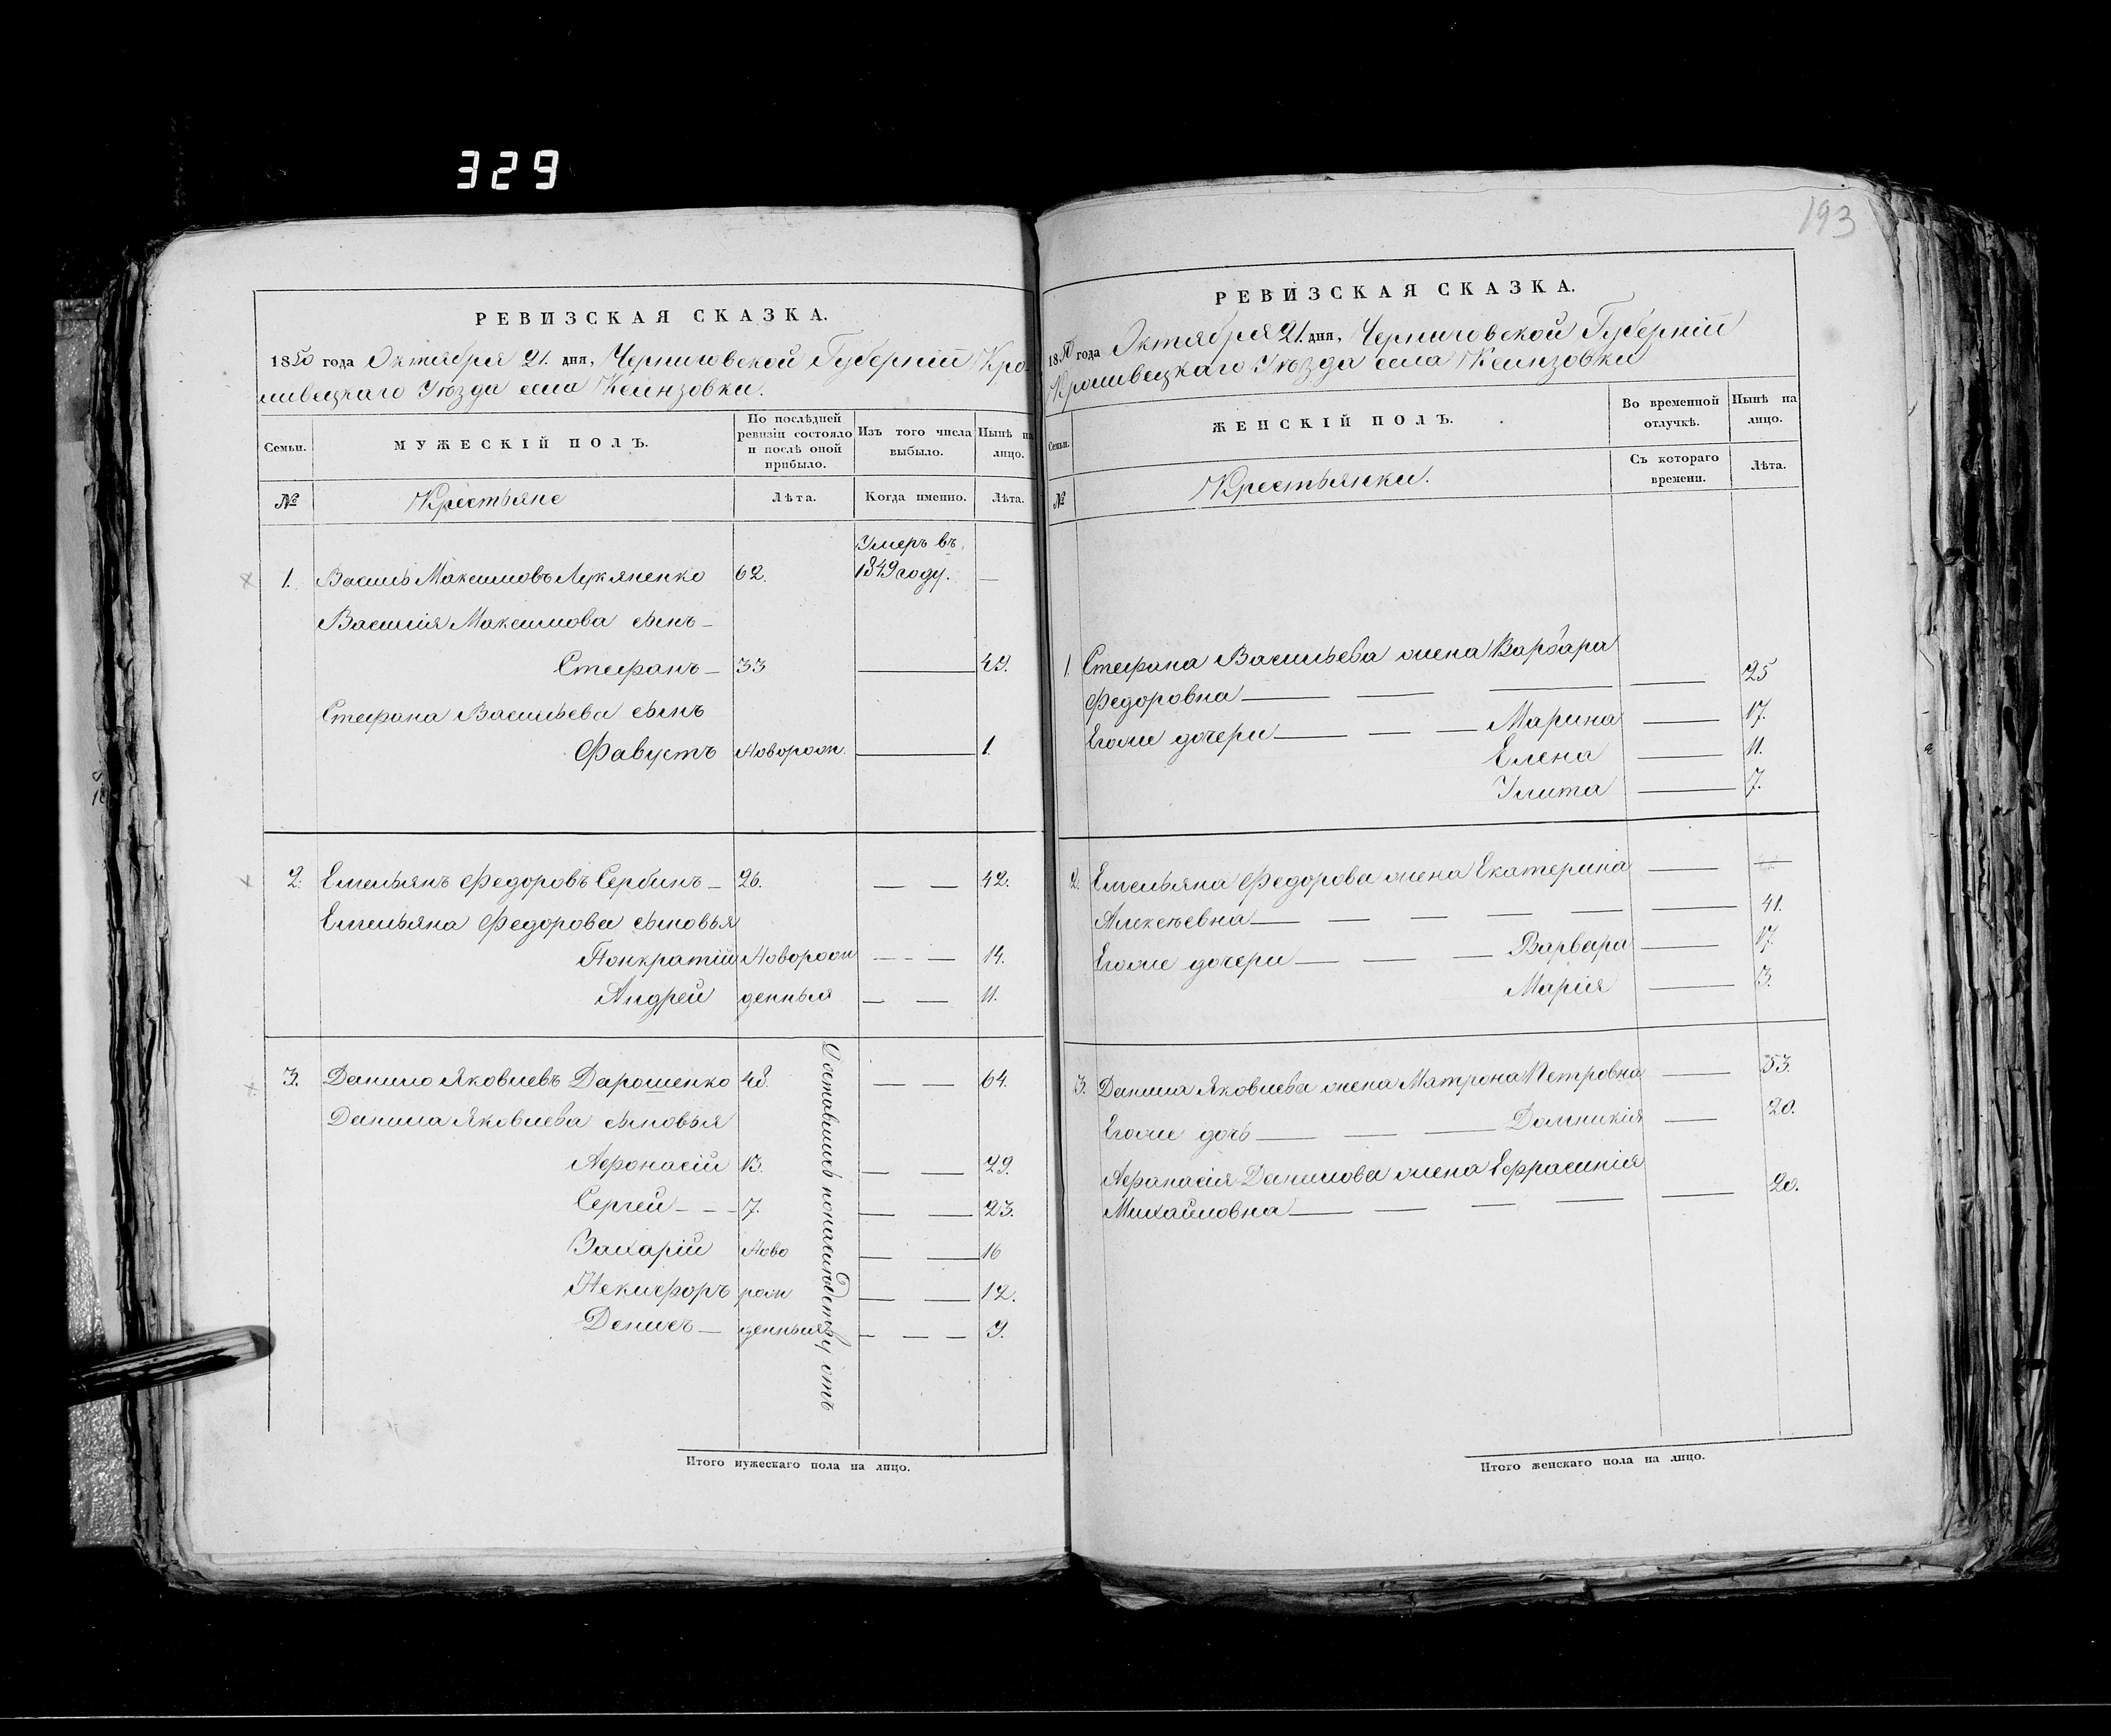 329
193
РЕВИЗСКАЯ СКАЗКА.
1850 года Октября 21. дня, Черниговской Губерніи Кро
ливецкаго Уѣзда села
Семьи.
МУЖЕСКІЙ ПОЛЪ.
По послѣдней ревизіи состояло и послѣ оной прибыло.
Изъ того числа выбыло.
Нынѣ на лицо.
№
Крестьяне
Лѣта.
Когда именно.
Лѣта.
Умеръ въ
1. Василь Максимовъ Лукяненко 62. 1849 году. —
Василія Максимова сынъ —
Стефанъ — 33 — 49.
Стефана Васильева сынъ
Фавустъ Новорож. — 1.
2. Емельянъ Федоровъ Сербинъ — 26. — — 42.
Емельяна Федорова сыновья
Понкратій Новорож — — — 14.
Андрей денныя — — 11.
3. Данило Яковлевъ Дарошенко 48. — — 64.
Данила Яковлева сыновья
Афонасій 13. — — 29.
Сергей — — — 7. — — 23.
Захарій Ново — — 16
Некифоръ рож — — 12.
Денисъ — денныя — — — 9.
Доставшиеся по наслѣдству отъ
Итого мужескаго пола на лицо.
РЕВИЗСКАЯ СКАЗКА.
1850 года Октября 21. дня, Черниговской Губерніи
Кроливецкаго Уѣзда села
Семьи.
ЖЕНСКІЙ ПОЛЪ.
Во временной отлучкѣ.
Нынѣ на лицо.
№
Крестьянки.
Съ котораго времени.
Лѣта.
1. Стефана Васильева жена Варвара
Федоровна — — — — 25
Егоже дочери — — — Марина — 17.
Елена — 11.
Улита — 7.
2. Емельяна Федорова жена Екатерина —
Алексѣевна — — — — — — 41.
Егоже дочери — — — Варвара — 17.
Марія — 3.
3. Данила Яковлева жена Матрона Петровна — 53.
Егоже дочь — — — Домникія — 20.
Афанасія Данилова жена Ефрасинія
Михайловна — — — — — 20.
Итого женскаго пола на лицо.